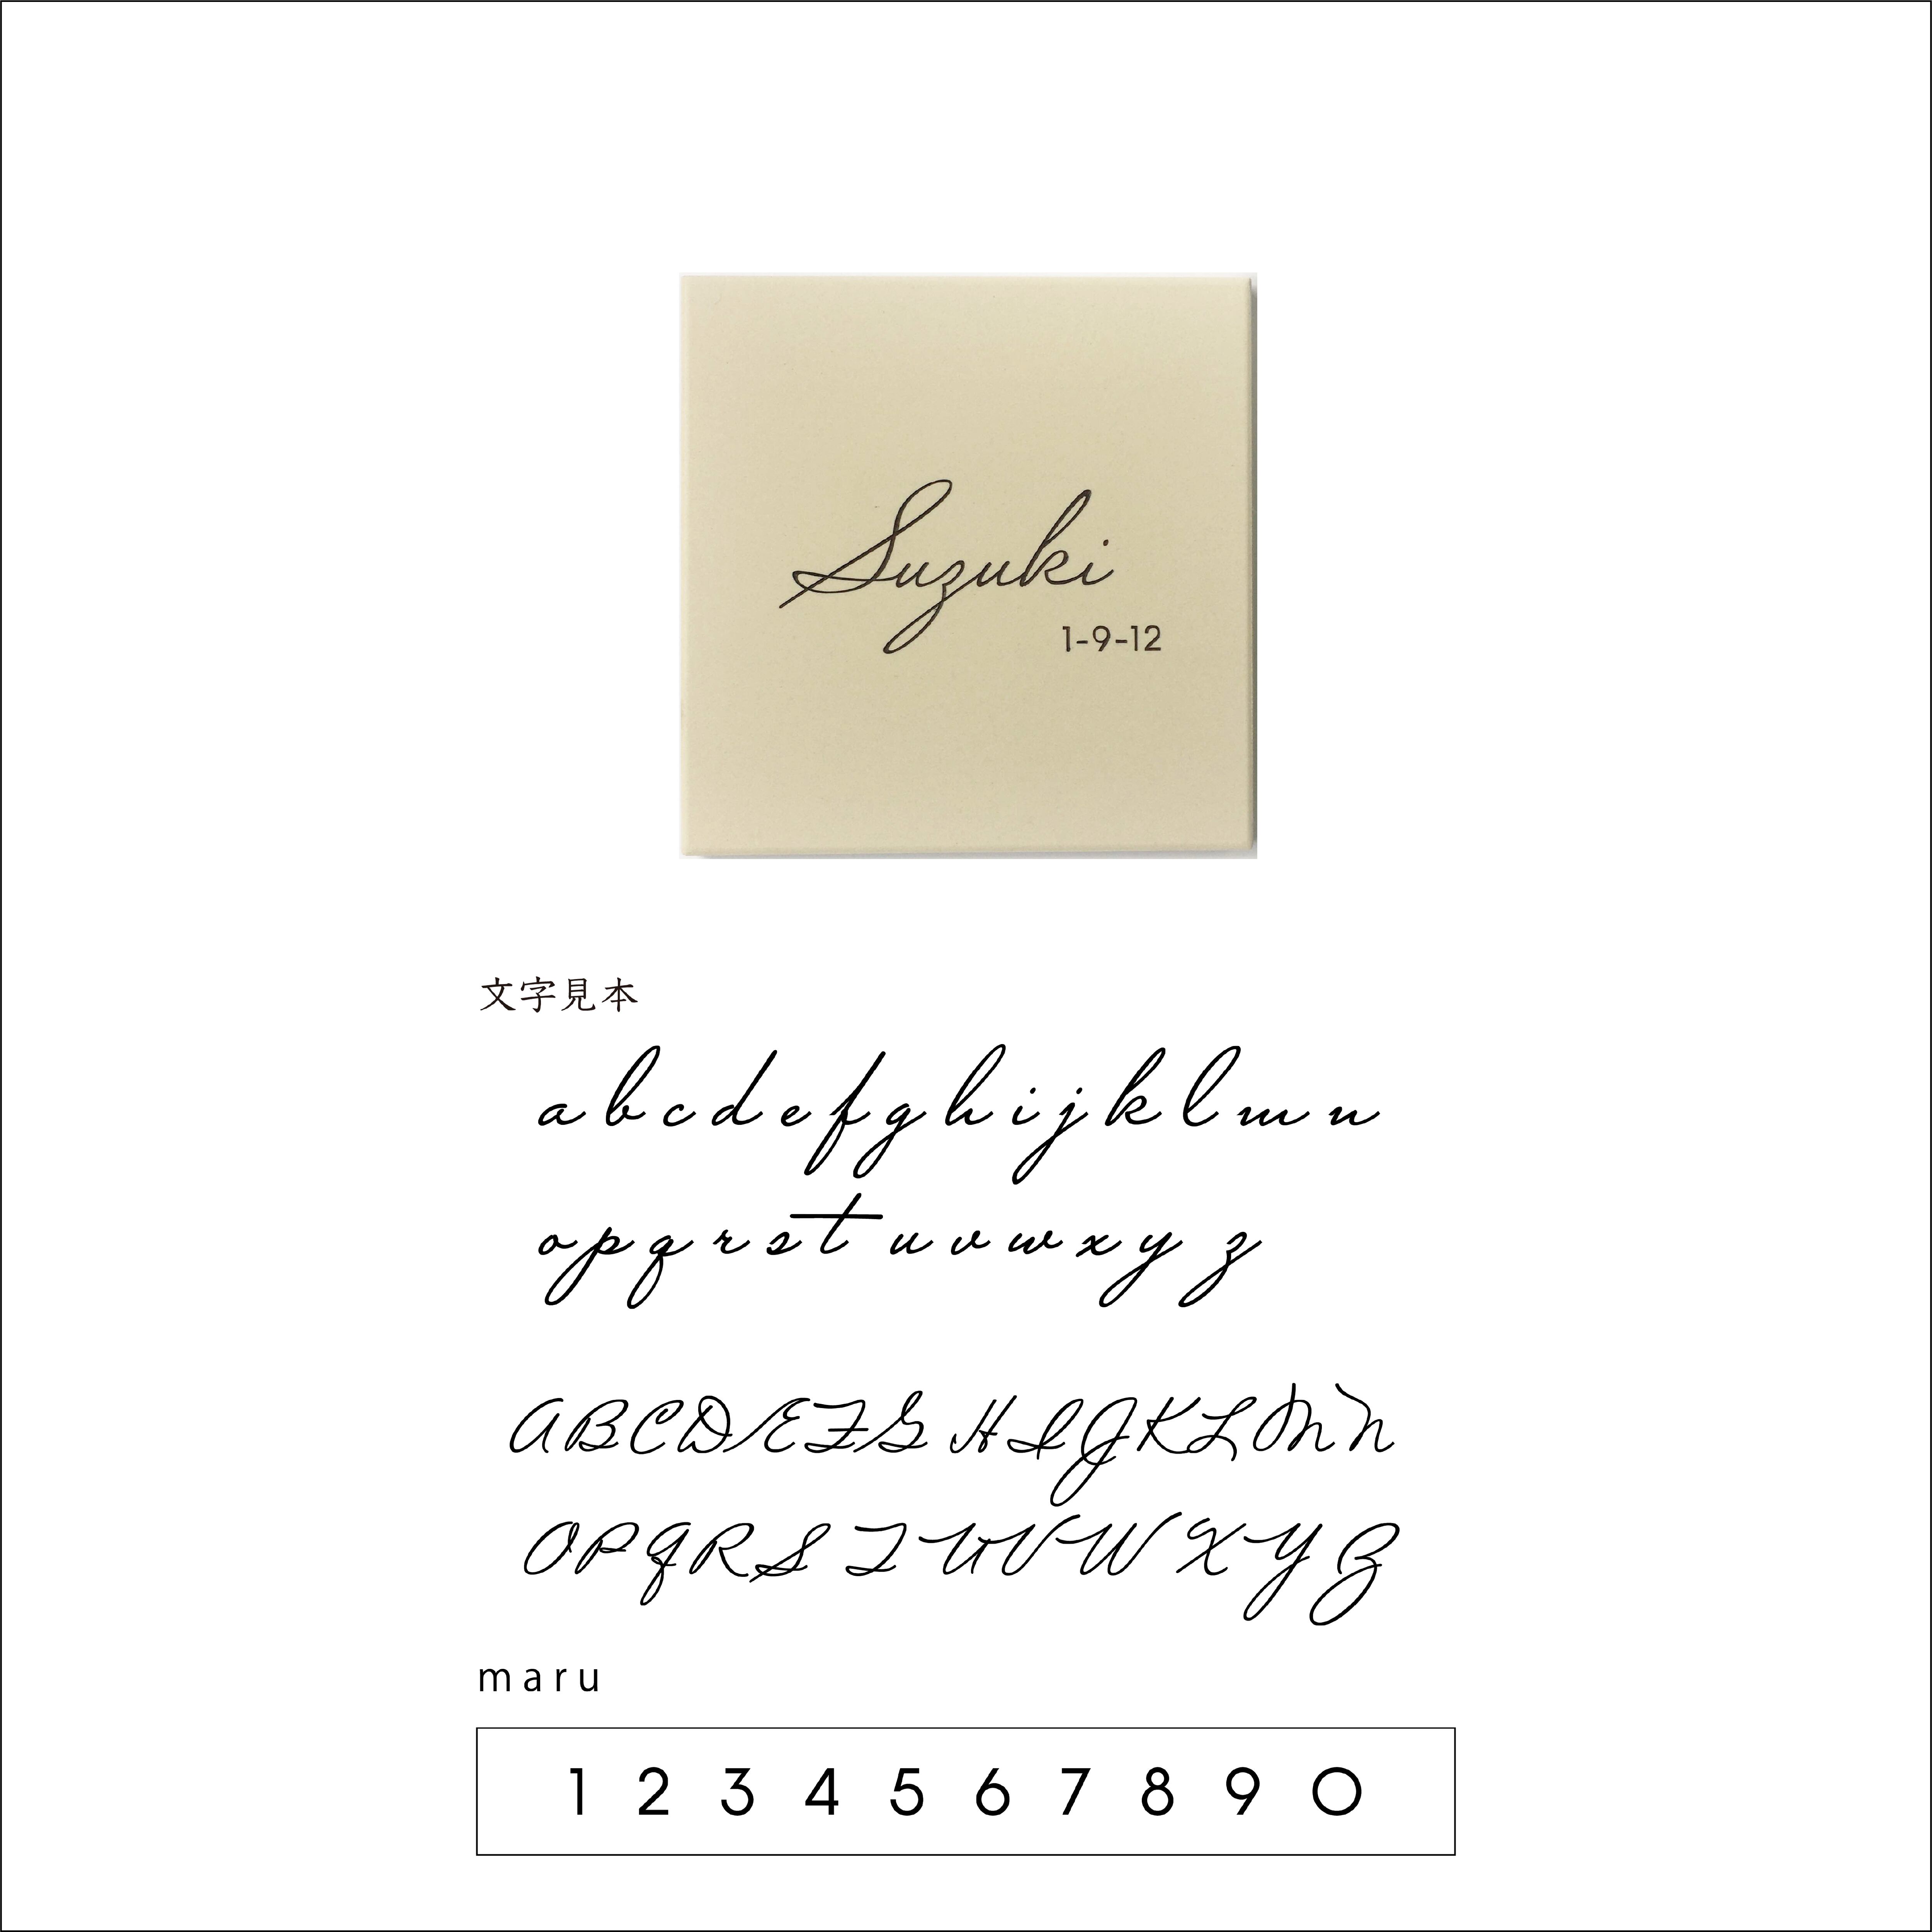 Suzuki
1-9-12
文字見本
a b c d e f g h i j k l m n
o p q r s t u v w x y z
A B C D E F G H I J K L M N
O P Q R S T U V W X Y Z
maru
1 2 3 4 5 6 7 8 9 0